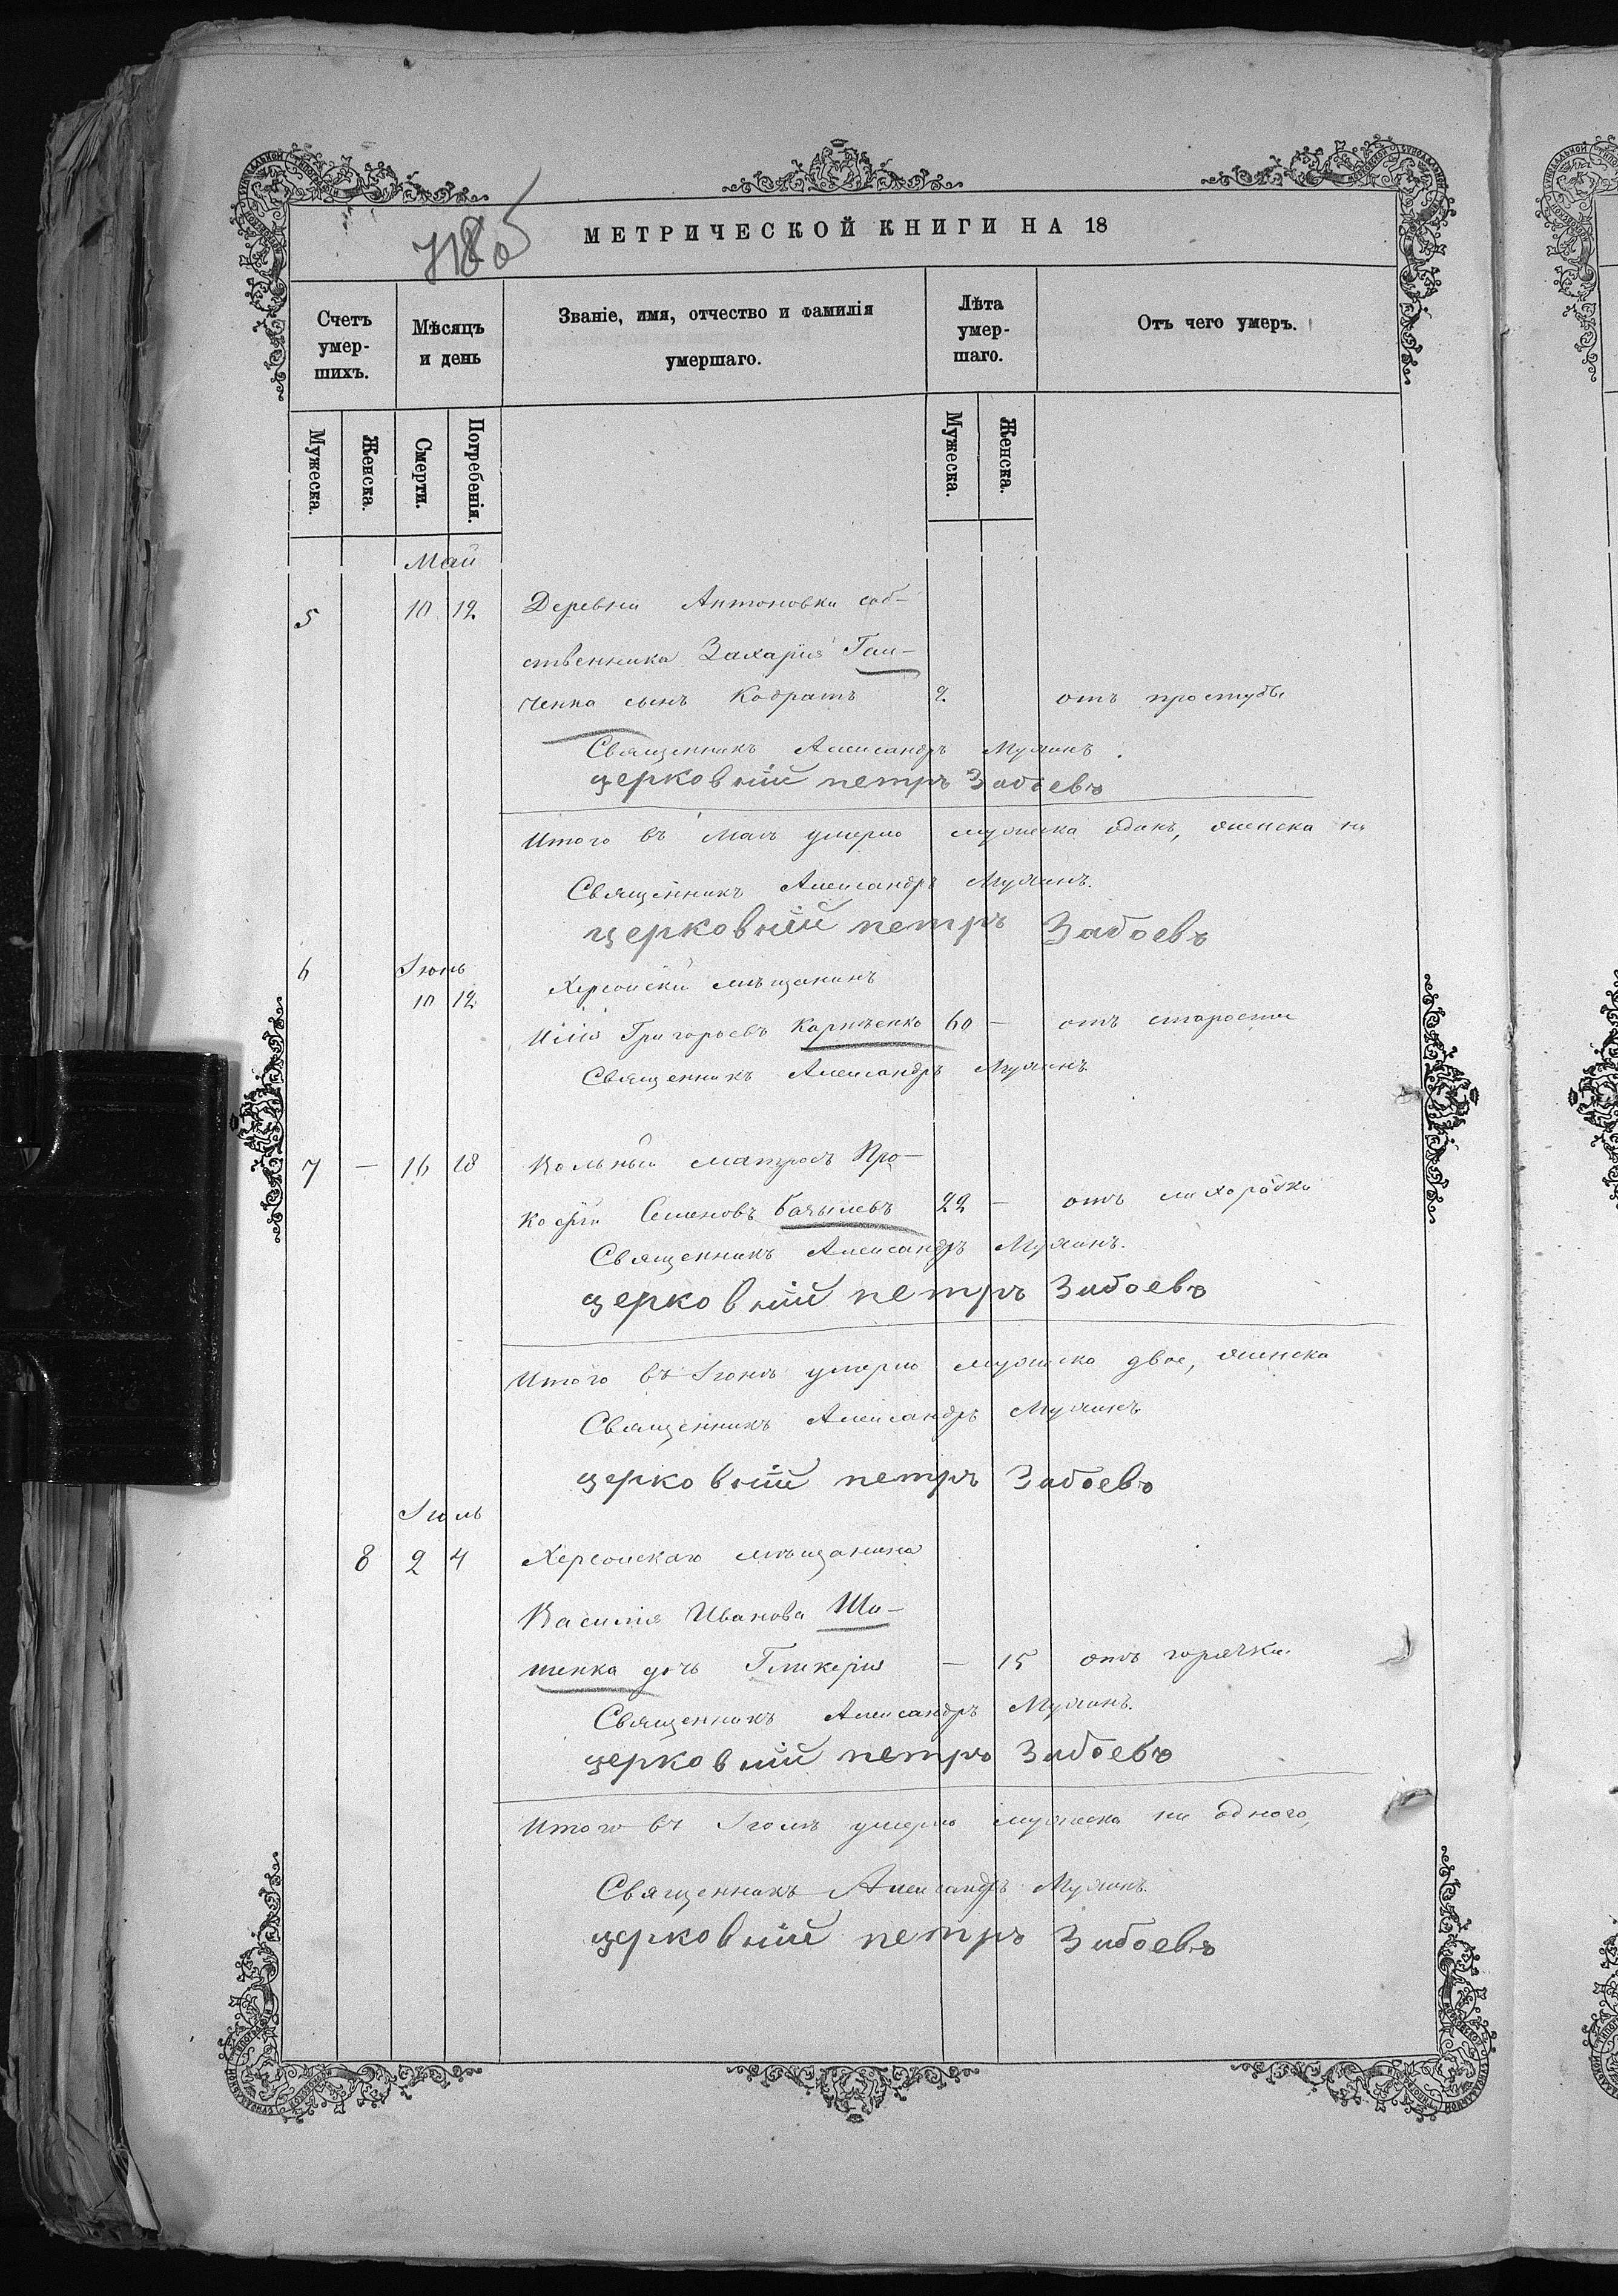 МЕТРИЧЕСКОЙ КНИГИ НА 18
Счетъ умер-шихъ.
Мѣсяцъ и день
Званіе, имя, отчество и фамилія умершаго.
Лѣта умер-шаго.
Отъ чего умеръ.
Мужеска.
Женска.
Смерти.
Погребенія.
Мужеска.
Женска.
Май
5 10 12 Деревни Антоновки соб-
ственника Захарія
ченка сынъ Кодратъ 2 отъ простуды
Священникъ Александръ
церковній петръ Забоевъ
Итого въ Маѣ умерло мужеска одинъ, женска ни
Священникъ Александръ
церковній петръ Забоевъ
6 Іюнь
10 12 Херсонскій мѣщанинъ
Илія Григорьевъ Карпенко 60 — отъ старости
Священникъ Александръ
7 — 16 18 Вольный матросъ Про-
кофій Семеновъ 22 — отъ лихорадки
Священникъ Александръ
церковній петръ Забоевъ
Итого въ Іюнѣ умерло мужеска двое, женска
Священникъ Александръ
церковній петръ Забоевъ
Іюль
8 2 4 Херсонскаго мѣщанина
Василія Иванова
дочь Гликерія — 15 отъ горячки
Священникъ Александръ
церковній петръ Забоевъ
Итого въ Іюлѣ умерло мужеска ни одного,
Священникъ Александръ
церковній петръ Забоевъ